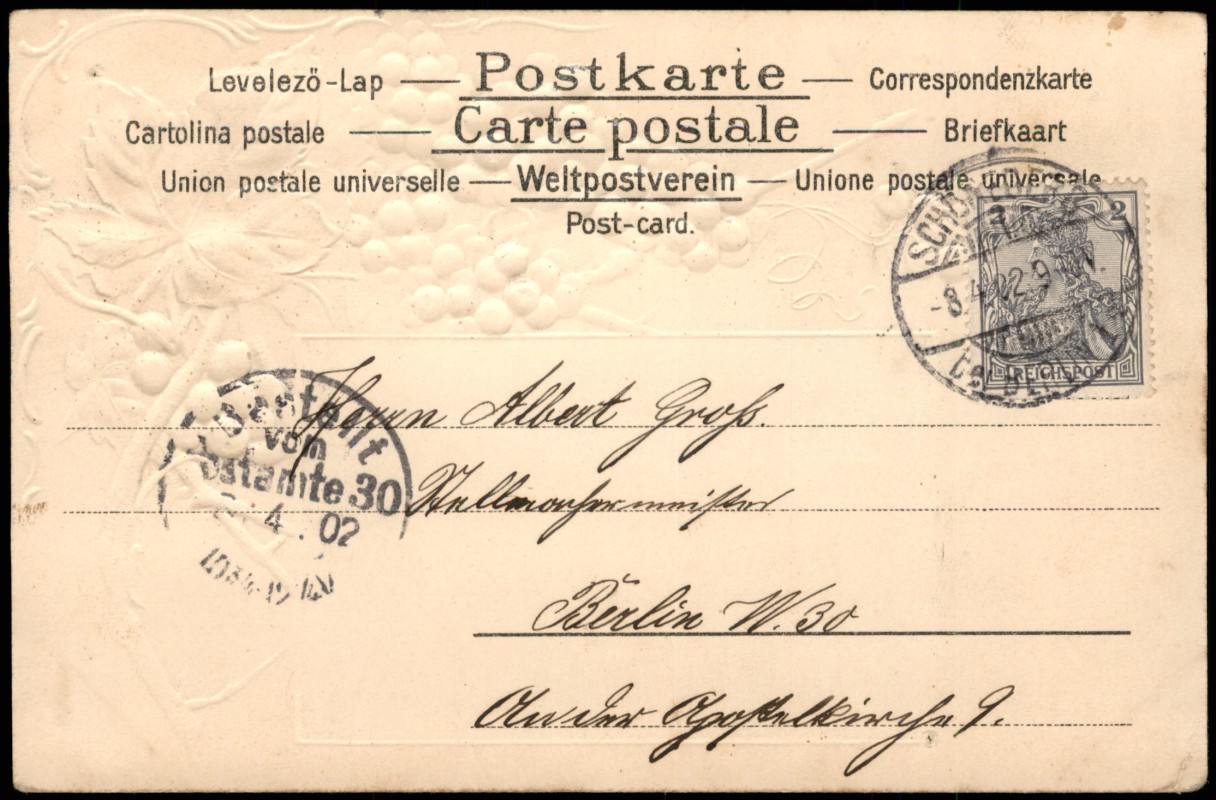 Levelező-Lap — Postkarte — Correspondenzkarte
Cartolina postale — Carte postale — Briefkaart
Union postale universelle — Weltpostverein — Unione postale universale
Post-card.
2
-8.4.02.9
REICHSPOST
Bestellt
vom
Postamte 30
4.02
Herrn Albert Groß.
Stellmachermeister
Berlin W. 30
An der Apostelkirche 9.